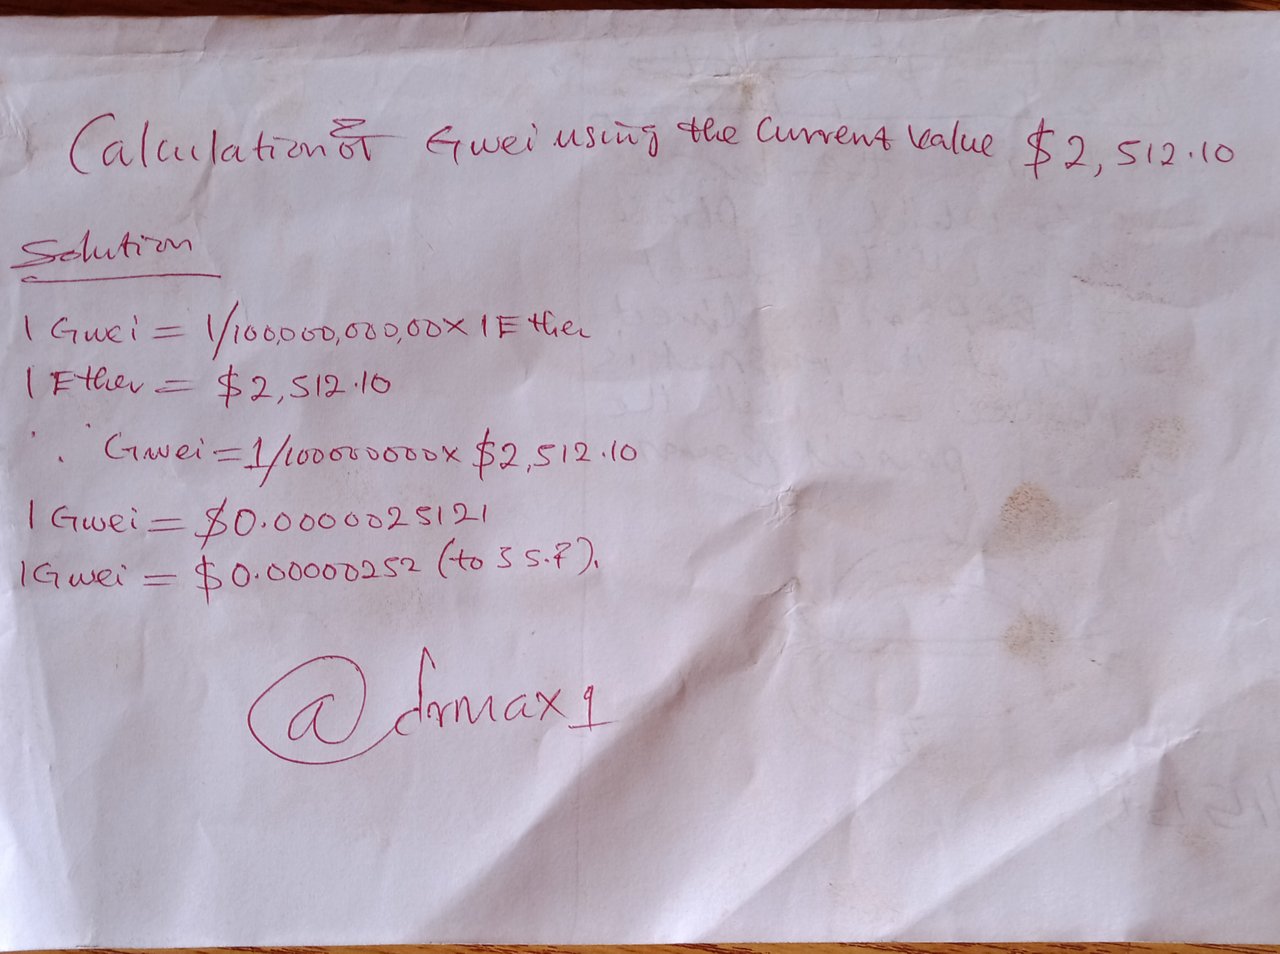 Calculation of Gwei using the Current Value $2,512.10
Solution
1 Gwei = 1/100,000,000,00x 1 Ether
1 Ether = $2,512.10
∴ Gwei = 1/1000000000x $2,512.10
1 Gwei = $0.0000025121
1 Gwei = $0.00000252 (to 3 s.f).
@drmax1